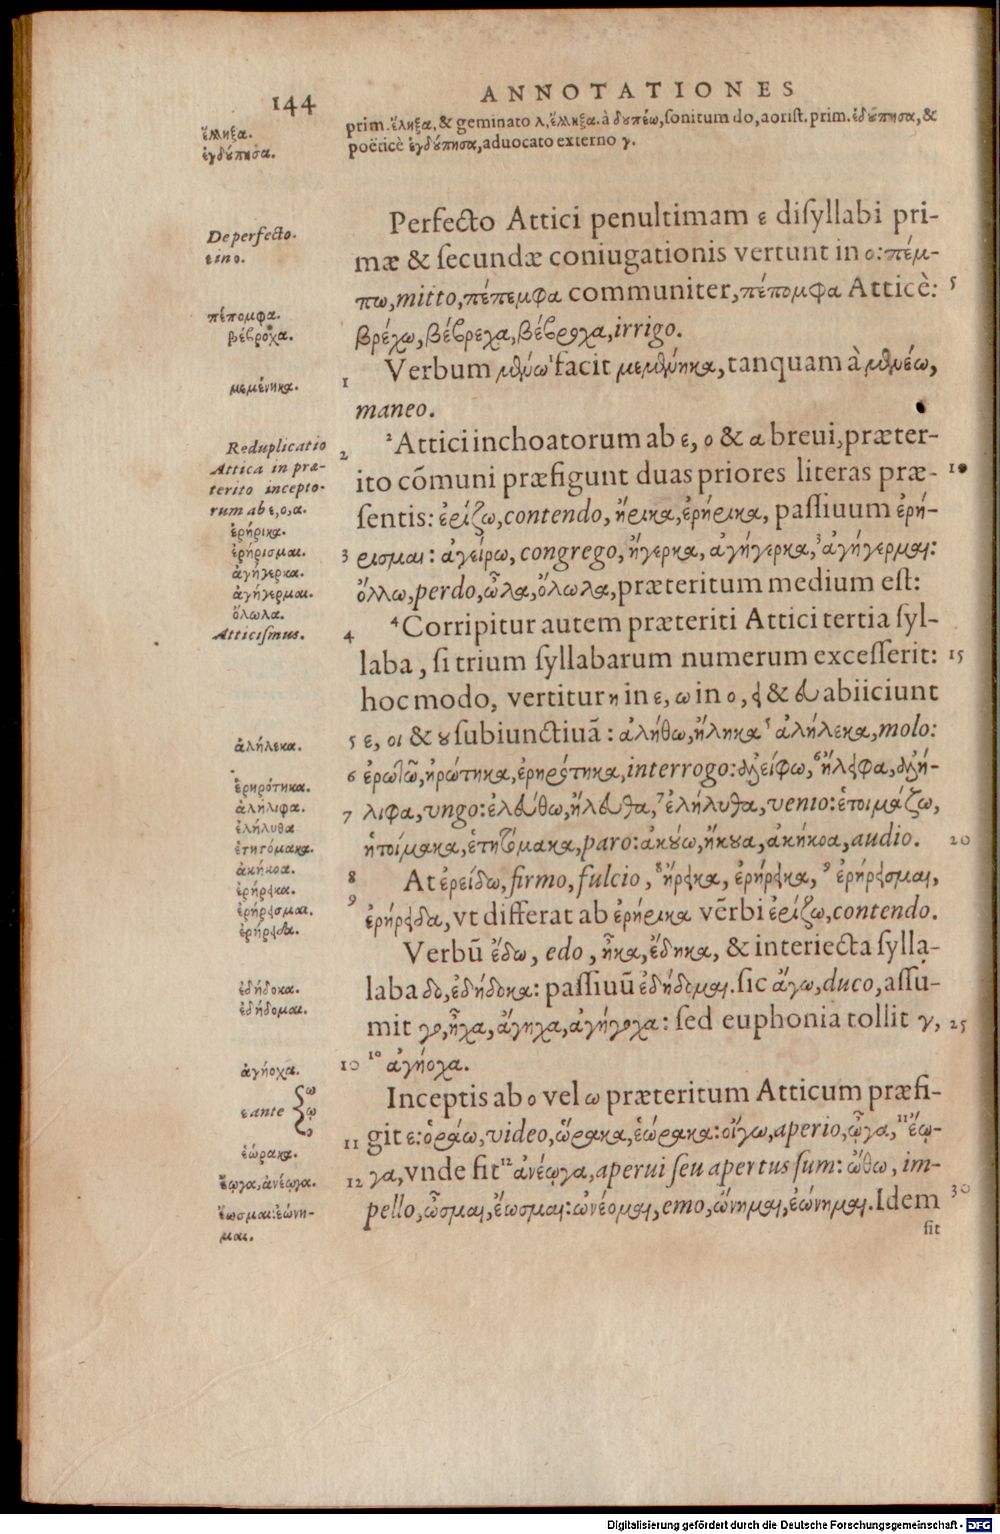 144
ANNOTATIONES
prim. ἔληξα, & geminato λ, ἔλληξα. à δουπέω, sonitum do, aorist. prim. ἐδούπησα, &
poëticè ἐγδούπησα, aduocato externo γ.
ἔλληξα.
ἐγδούπησα.
Perfecto Attici penultimam ε disyllabi pri-
mæ & secundæ coniugationis vertunt in ο: πέμ-
πω, mitto, πέπεμφα communiter, πέπομφα Atticè: 5
βρέχω, βέβρεχα, βέβροχα, irrigo.
De perfecto.
ε in ο.
πέπομφα.
βέβροχα.
Verbum μένω facit μεμένηκα, tanquam à μενέω,
maneo.
1
μεμένηκα.
²Attici inchoatorum ab ε, ο & α breui, præter-
ito cõmuni præfigunt duas priores literas præ- 10
sentis: ἐρίζω, contendo, ἤρικα, ἐρήρικα, passiuum ἐρή-
ρισμαι: ἀγείρω, congrego, ἤγερκα, ἀγήγερκα, ³ἀγήγερμαι:
ὄλλω, perdo, ὦλα, ὄλωλα, præteritum medium est:
Reduplicatio
Attica in præ-
terito incepto-
rum ab ε, ο, α.
ἐρήρικα.
ἐρήρισμαι.
ἀγήγερκα.
ἀγήγερμαι.
ὄλωλα.
Atticismus.
2
3
4
⁴Corripitur autem præteriti Attici tertia syl-
laba, si trium syllabarum numerum excesserit: 15
hoc modo, vertitur η in ε, ω in ο, ει & ευ abiiciunt
ε, οι & ου subiunctiuã: ἀλήθω, ἤληκα ⁵ἀλήλεκα, molo:
ἐρωτῶ, ἠρώτηκα, ἐρηρότηκα, interrogo: ἀλείφω, ⁶ἤλειφα, ἀλή-
λιφα, vngo: ἐλεύθω, ἤλευθα, ⁷ἐλήλυθα, venio: ἑτοιμάζω,
ἡτοίμακα, ἑτητόμακα, paro: ἀκούω, ἤκουα, ἀκήκοα, audio. 20
5
6
7
ἀλήλεκα.
ἐρηρότηκα.
ἀλήλιφα.
ἐλήλυθα
ἑτητόμακα.
ἀκήκοα.
ἐρήρεικα.
ἐρήρεισμαι.
ἐρήρειδα.
At ἐρείδω, firmo, fulcio, ⁸ἤρεικα, ἐρήρεικα, ⁹ἐρήρεισμαι,
ἐρήρειδα, vt differat ab ἐρήρικα vẽrbi ἐρίζω, contendo.
8
9
Verbũ ἔδω, edo, ἦκα, ἔδηκα, & interiecta sylla-
laba δο, ἐδήδοκα: passiuũ ἐδήδομαι. sic ἄγω, duco, assu-
mit γο, ἦχα, ἄγηχα, ἀγήγοχα: sed euphonia tollit γ, 25
¹⁰ἀγήοχα.
10
ἐδήδοκα.
ἐδήδομαι.
ἀγήοχα.
Inceptis ab ο vel ω præteritum Atticum præfi-
git ε: ὁράω, video, ὥρακα, ἑώρακα: οἴγω, aperio, ᾦγα, ¹¹ἔῳ-
γα, vnde fit ¹²ἀνέῳγα, aperui seu apertus sum: ὤθω, im-
pello, ὦσμαι, ἔωσμαι: ὠνέομαι, emo, ὤνημαι, ἐώνημαι. Idem 30
ε ante { ω
ῳ
ο
ἑώρακα.
ἔῳγα, ἀνέῳγα.
ἔωσμαι: ἐώνη-
μαι.
11
12
fit
Digitalisierung gefördert durch die Deutsche Forschungsgemeinschaft - DFG